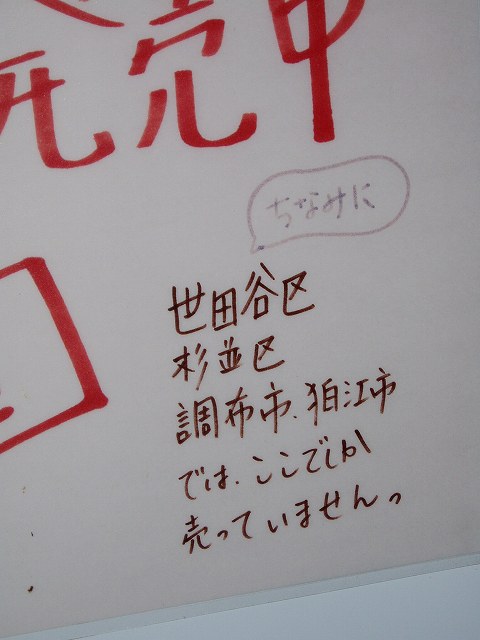 売中
ちなみに
世田谷区
杉並区
調布市、狛江市
では、ここでしか
売っていません。